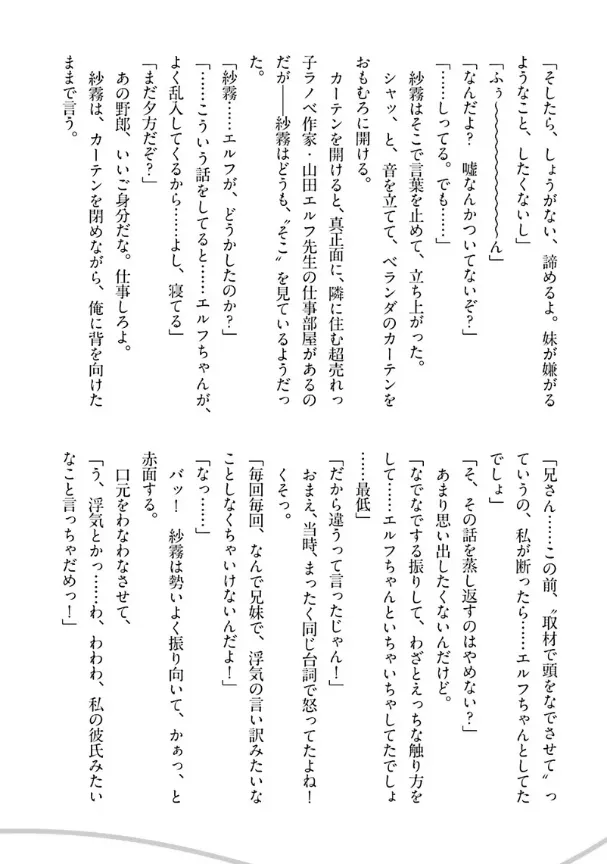 「そしたら、しょうがない、諦めるよ。妹が嫌がる
ようなこと、したくないし」
「ふぅ〜〜〜〜〜〜〜〜〜ん」
「なんだよ？　嘘なんかついてないぞ？」
「……しってる。でも……」
　紗霧はそこで言葉を止めて、立ち上がった。
　シャッ、と、音を立てて、ベランダのカーテンを
おもむろに開ける。
　カーテンを開けると、真正面に、隣に住む超売れっ
子ラノベ作家・山田エルフ先生の仕事部屋があるの
だが――紗霧はどうも、〝そこ〟を見ているようだっ
た。
「紗霧……エルフが、どうかしたのか？」
「……こういう話をしてると……エルフちゃんが、
よく乱入してくるから……よし、寝てる」
「まだ夕方だぞ？」
　あの野郎、いいご身分だな。仕事しろよ。
　紗霧は、カーテンを閉めながら、俺に背を向けた
ままで言う。
「兄さん……この前、〝取材で頭をなでさせて〟っ
ていうの、私が断ったら……エルフちゃんとしてた
でしょ」
「そ、その話を蒸し返すのはやめない？」
　あまり思い出したくないんだけど。
「なでなでする振りして、わざとえっちな触り方を
して……エルフちゃんといちゃいちゃしてたでしょ
……最低」
「だから違うって言ったじゃん！」
　おまえ、当時、まったく同じ台詞で怒ってたよね！
　くそっ。
「毎回毎回、なんで兄妹で、浮気の言い訳みたいな
ことしなくちゃいけないんだよ！」
「なっ……」
　バッ！　紗霧は勢いよく振り向いて、かぁっ、と
赤面する。
　口元をわなわなさせて、
「う、浮気とかっ……わ、わわわ、私の彼氏みたい
なこと言っちゃだめっ！」